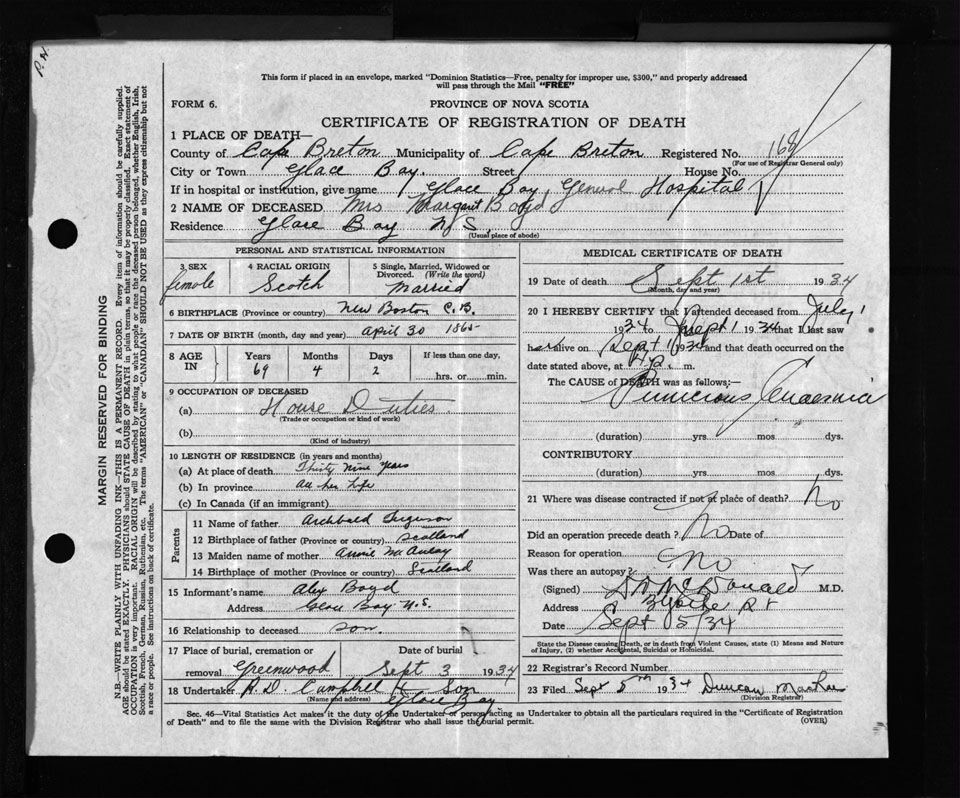 P.N.
This form if placed in an envelope, marked "Dominion Statistics—Free, penalty for improper use, $300," and properly addressed
will pass through the Mail "FREE"
FORM 6.
PROVINCE OF NOVA SCOTIA
CERTIFICATE OF REGISTRATION OF DEATH
1 PLACE OF DEATH—
County of Cape Breton Municipality of Cape Breton Registered No. 168
(For use of Registrar General only)
City or Town Glace Bay. Street House No.
If in hospital or institution, give name Glace Bay General Hospital
2 NAME OF DECEASED Mrs Margaret Boyd
Residence Glace Bay N.S.
(Usual place of abode)
PERSONAL AND STATISTICAL INFORMATION
3 SEX female
4 RACIAL ORIGIN Scotch
5 Single, Married, Widowed or Divorced. (Write the word) Married
6 BIRTHPLACE (Province or country) New Boston C.B.
7 DATE OF BIRTH (month, day and year) April 30 1865
8 AGE IN Years Months Days If less than one day,
69 4 2 hrs. or min.
9 OCCUPATION OF DECEASED
(a) House Duties
(Trade or occupation or kind of work)
(b)
(Kind of industry)
10 LENGTH OF RESIDENCE (in years and months)
(a) At place of death Thirty Nine Years
(b) In province All her life
(c) In Canada (if an immigrant)
Parents
11 Name of father Archbald Ferguson
12 Birthplace of father (Province or country) Scotland
13 Maiden name of mother Annie McAulay
14 Birthplace of mother (Province or country) Scotland
15 Informant's name Alex Boyd
Address Glace Bay N.S.
16 Relationship to deceased son.
17 Place of burial, cremation or removal Date of burial
Greenwood Sept 3 1934
18 Undertaker A. D. Campbell & Son
(Name and address) Glace Bay
MEDICAL CERTIFICATE OF DEATH
19 Date of death Sept 1st 1934
(Month, day and year)
20 I HEREBY CERTIFY that I attended deceased from July 1
1934 to Sept 1 1934 that I last saw
her alive on Sept 1 1934 and that death occurred on the
date stated above, at m.
The CAUSE of DEATH was as follows:—
Pernicious Anaemia
(duration) yrs. mos. dys.
CONTRIBUTORY
(duration) yrs. mos. dys.
21 Where was disease contracted if not at place of death? No
Did an operation precede death? No Date of
Reason for operation
Was there an autopsy? No
(Signed) McDonald M.D.
Address
Date Sept 5/34
State the Disease causing Death, or in death from Violent Causes, state (1) Means and Nature
of Injury, (2) whether Accidental, Suicidal or Homicidal.
22 Registrar's Record Number
23 Filed Sept 5th 1934 Duncan
(Division Registrar)
Sec. 46—Vital Statistics Act makes it the duty of the Undertaker or person acting as Undertaker to obtain all the particulars required in the "Certificate of Registration
of Death" and to file the same with the Division Registrar who shall issue the burial permit. (OVER)
MARGIN RESERVED FOR BINDING
N.B.—WRITE PLAINLY WITH UNFADING INK—THIS IS A PERMANENT RECORD. Every item of information should be carefully supplied.
AGE should be stated EXACTLY. PHYSICIANS should STATE CAUSE OF DEATH in plain terms, so that it may be properly classified. Exact statement of
OCCUPATION is very important. RACIAL ORIGIN will be described by stating to what people or race the deceased person belonged, whether English, Irish,
Scottish, French, German, Russian, Ruthenian, etc. The terms "AMERICAN" or "CANADIAN" SHOULD NOT BE USED as they express citizenship but not
a race or people. See instructions on back of certificate.